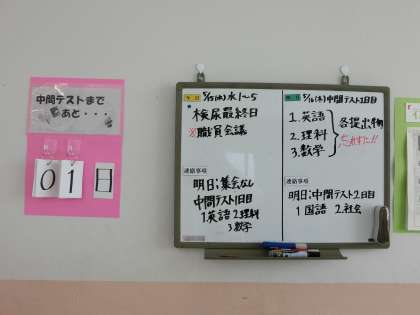 中間テストまで
あと・・・
01日
今日 5/15(水) 水1~5
検尿最終日
※職員会議
連絡事項
明日:集会なし
中間テスト1日目
1英語 2理科
3数学
明日 5/16(木) 中間テスト1日目
1.英語
2.理科
3.数学
各提出物
忘れずに!!
連絡事項
明日:中間テスト2日目
1国語 2.社会